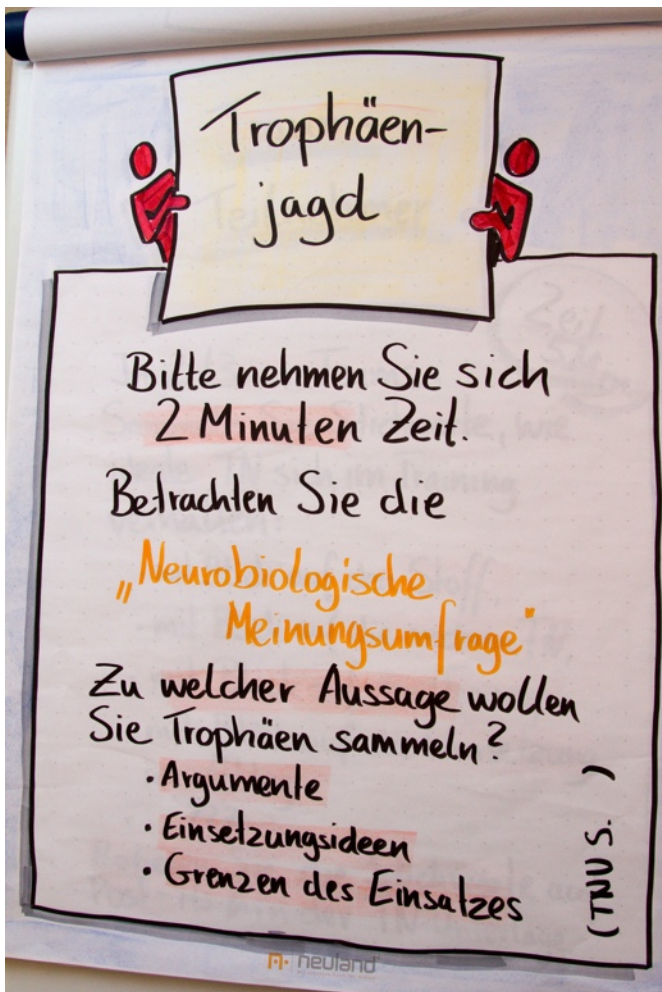 Trophäen-
jagd
Bitte nehmen Sie sich
2 Minuten Zeit.
Betrachten Sie die
„Neurobiologische
Meinungsumfrage"
Zu welcher Aussage wollen
Sie Trophäen sammeln?
· Argumente
· Einsetzungsideen
· Grenzen des Einsatzes
(TNU S. )
neuland